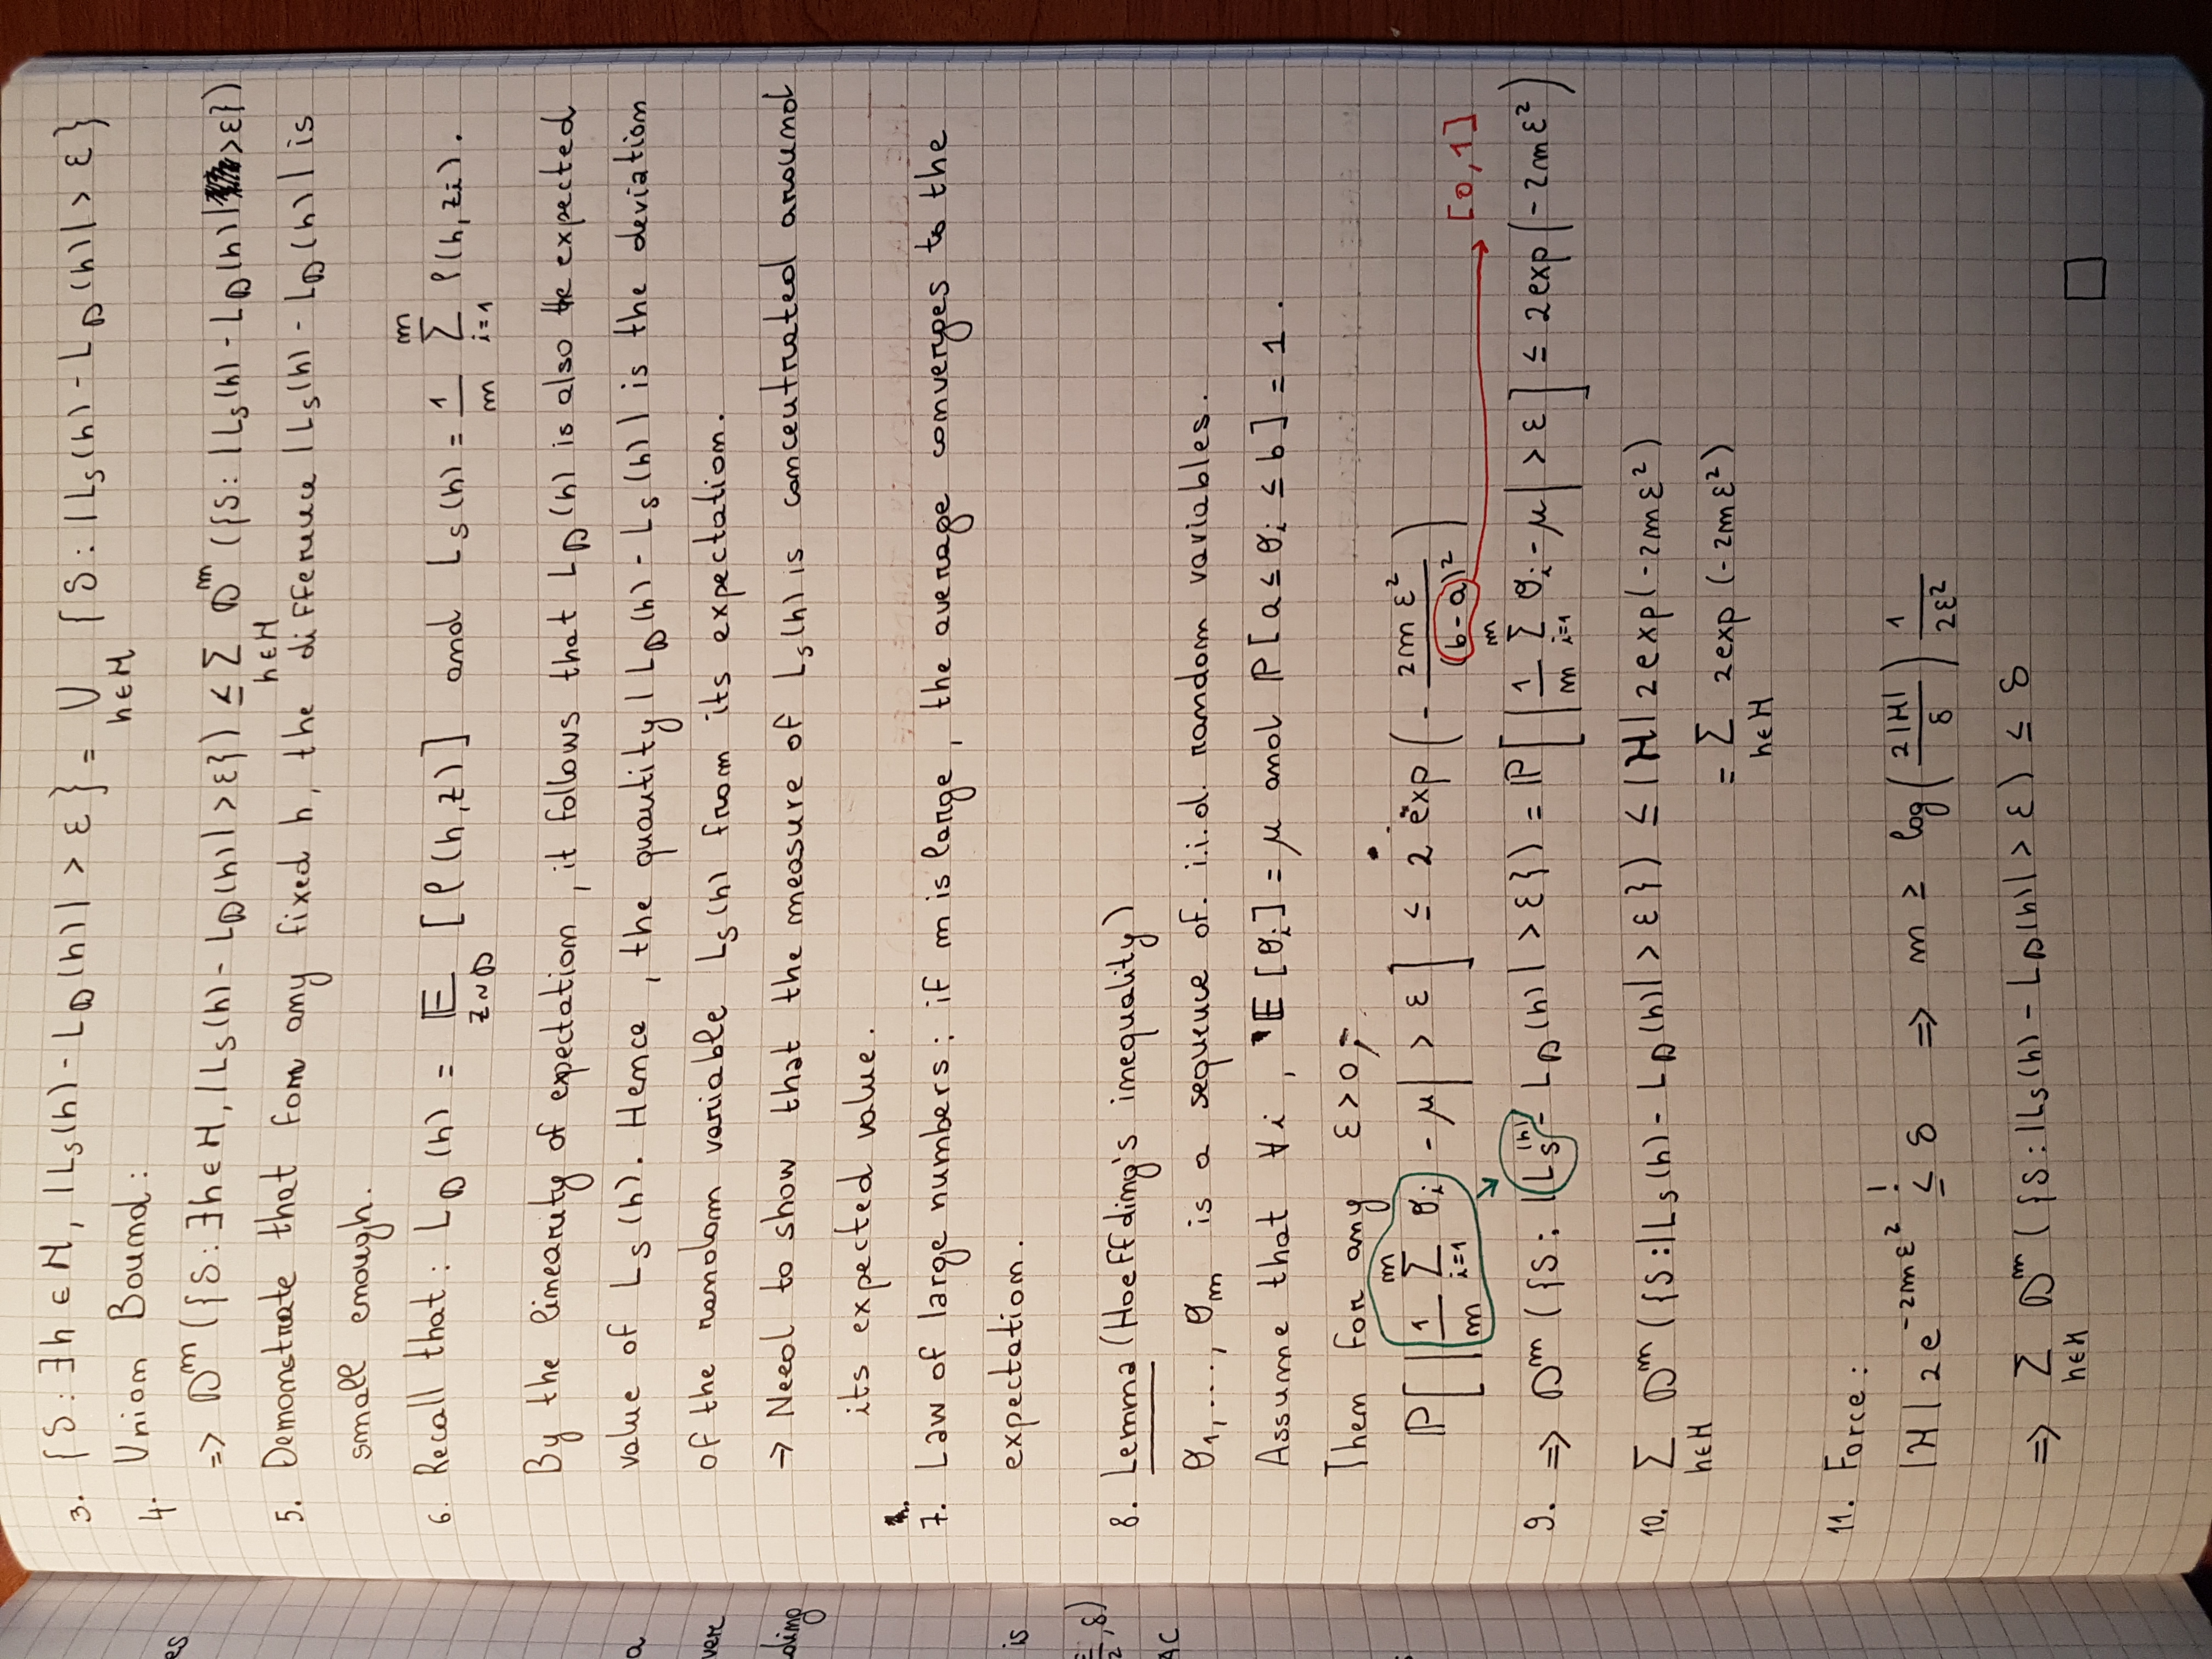 3. {S : ∃h ∈ H, |L_S(h) - L_D(h)| > ε} = ∪_{h∈H} {S : |L_S(h) - L_D(h)| > ε}
4. Union Bound:
=> D^m ({S : ∃h ∈ H, |L_S(h) - L_D(h)| > ε}) ≤ Σ_{h∈H} D^m ({S : |L_S(h) - L_D(h)| > ε})
5. Demonstrate that for any fixed h, the difference |L_S(h) - L_D(h)| is
small enough.
6. Recall that: L_D(h) = E_{z∼D} [ℓ(h,z)] and L_S(h) = 1/m Σ_{i=1}^m ℓ(h,z_i).
By the linearity of expectation, it follows that L_D(h) is also the expected
value of L_S(h). Hence, the quantity |L_D(h) - L_S(h)| is the deviation
of the random variable L_S(h) from its expectation.
→ Need to show that the measure of L_S(h) is concentrated around
its expected value.
7. Law of large numbers: if m is large, the average converges to the
expectation.
8. Lemma (Hoeffding's inequality)
θ_1, ..., θ_m is a sequence of i.i.d. random variables.
Assume that ∀i, E[θ_i] = μ and P[a ≤ θ_i ≤ b] = 1.
Then for any ε > 0,
P[|1/m Σ_{i=1}^m θ_i - μ| > ε] ≤ 2 exp(- 2mε²/(b-a)²)
[0,1]
9. => D^m ({S : |L_S(h) - L_D(h)| > ε}) = P[|1/m Σ_{i=1}^m θ_i - μ| > ε] ≤ 2exp(-2mε²)
10. Σ_{h∈H} D^m ({S : |L_S(h) - L_D(h)| > ε}) ≤ |H| 2exp(-2mε²)
= Σ_{h∈H} 2exp(-2mε²)
11. Force:
|H| 2e^{-2mε²} ≤! δ => m ≥ log(2|H|/δ) 1/2ε²
=> Σ_{h∈H} D^m ({S : |L_S(h) - L_D(h)| > ε) ≤ δ
□
es
a
were
ding
is
ε/2, δ)
AC